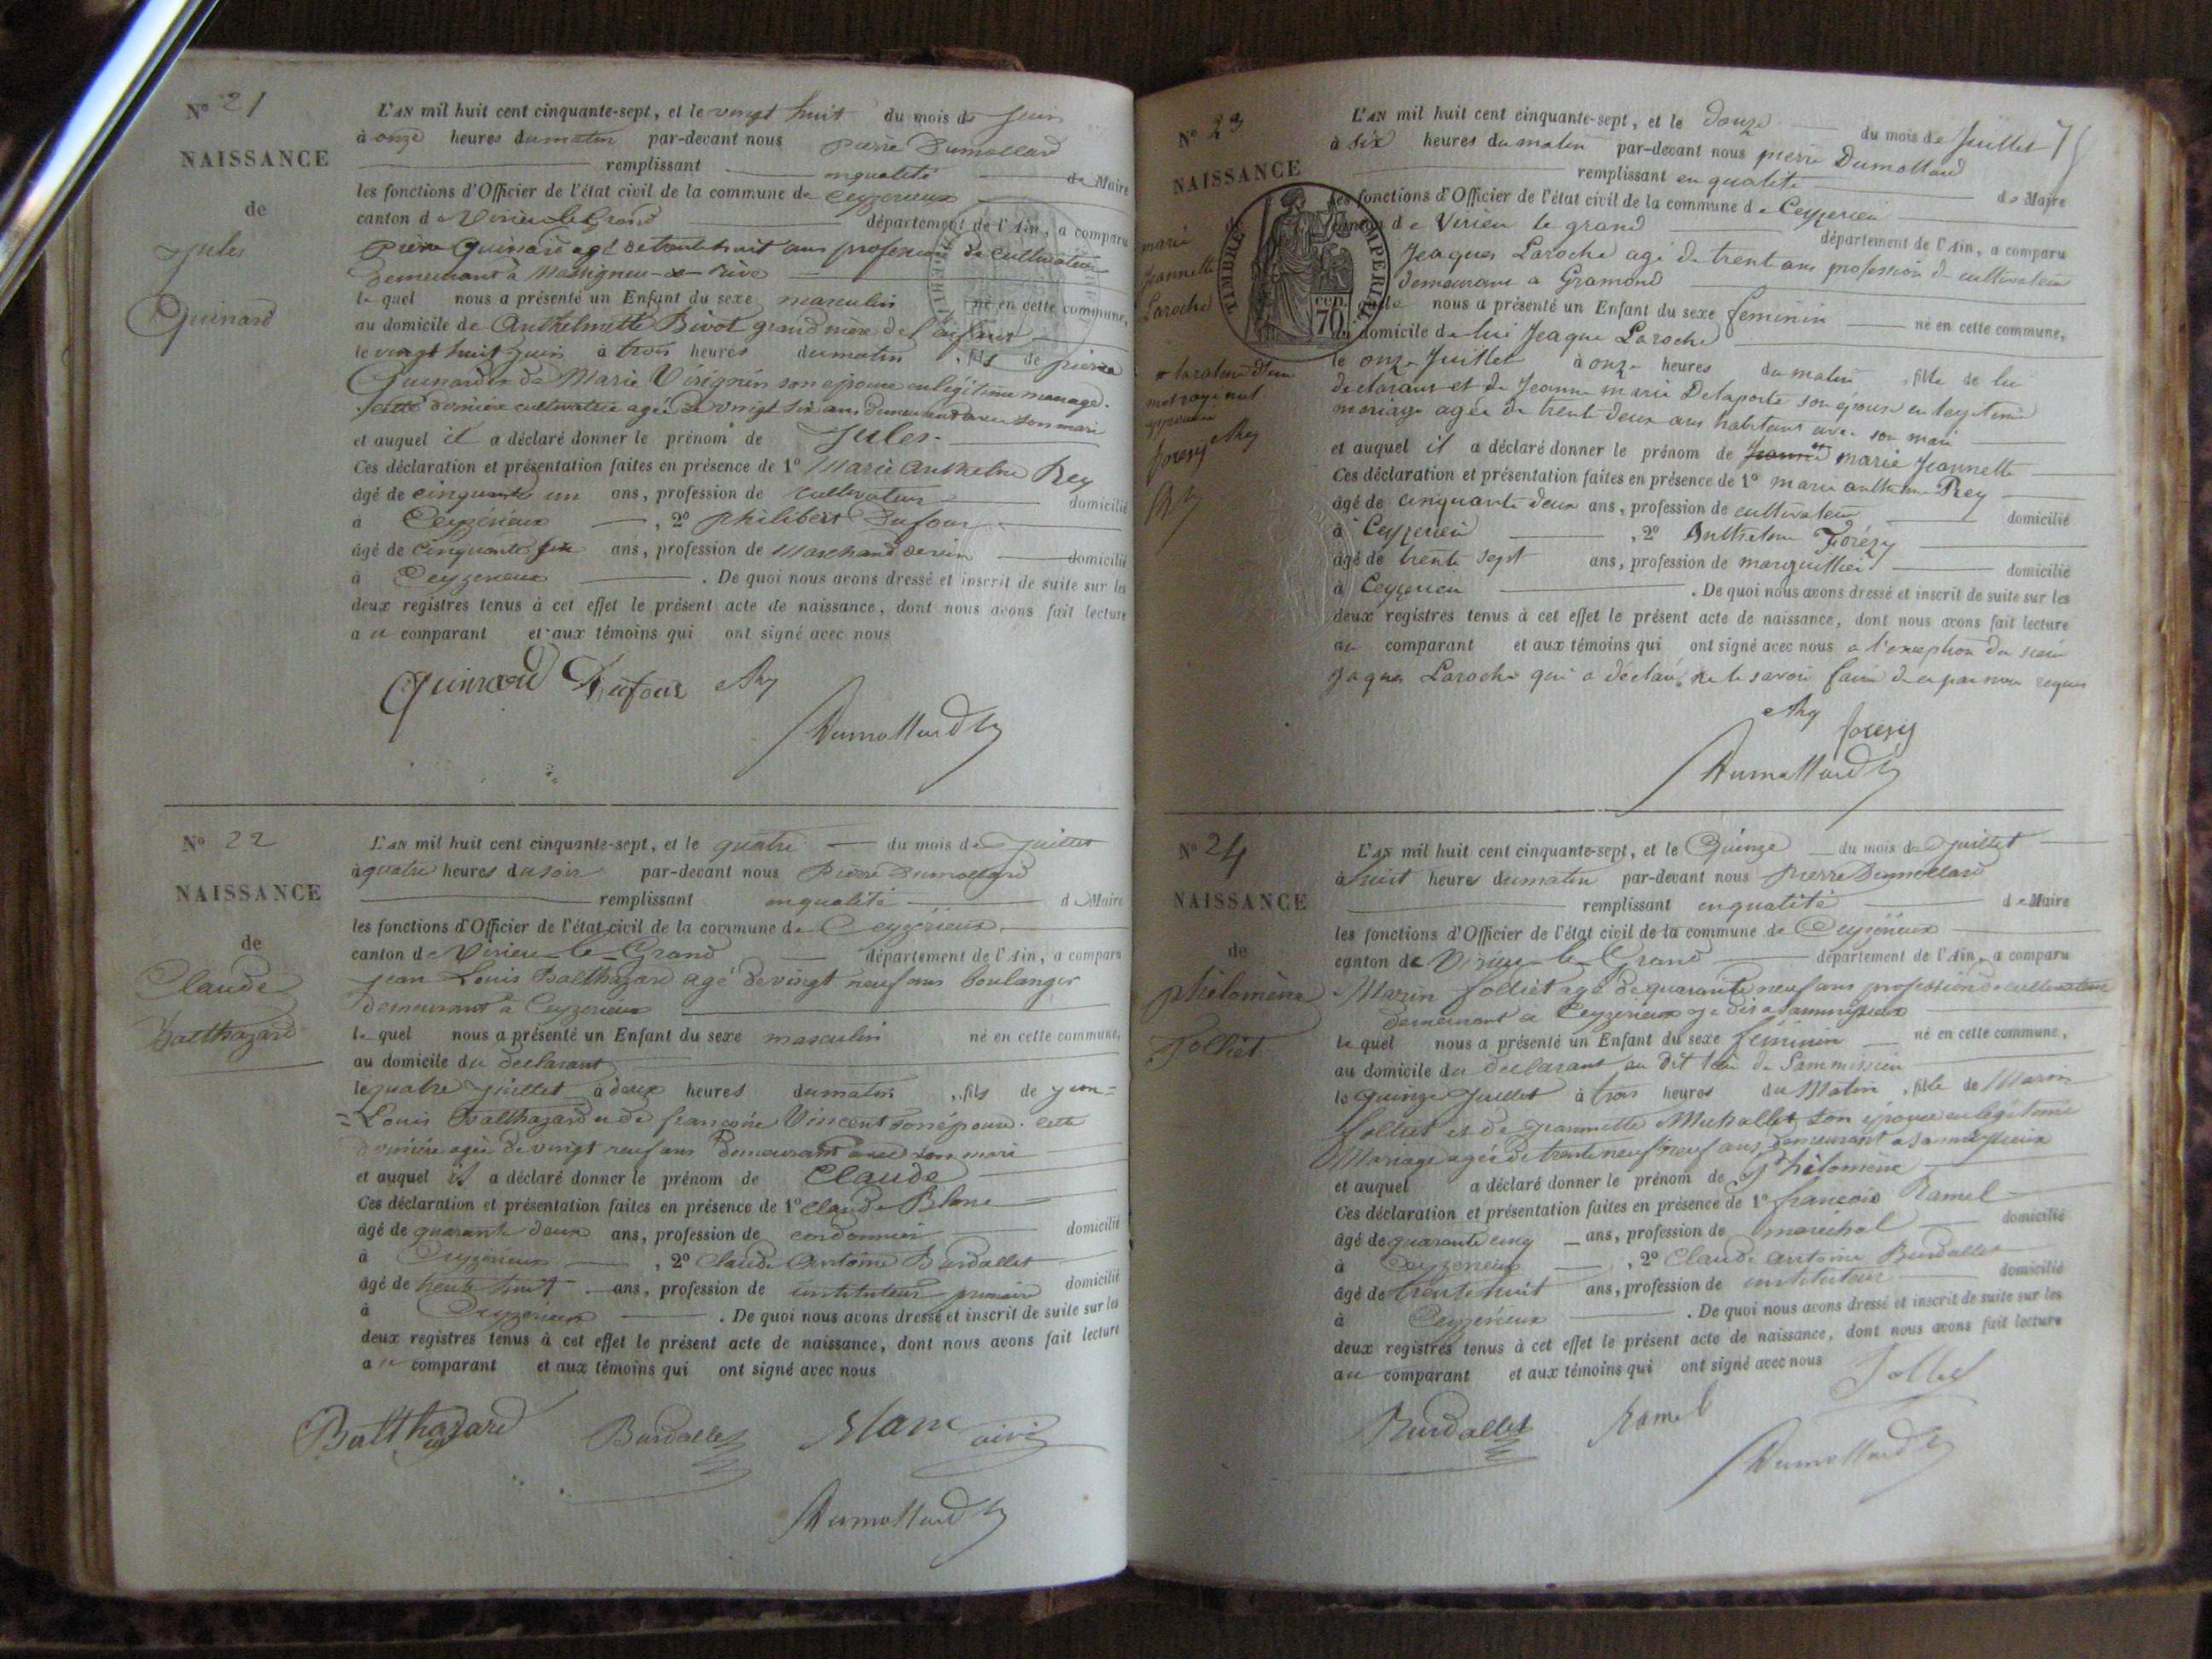 N° 21
NAISSANCE
de
Jules
Guinard
L'AN mil huit cent cinquante-sept, et le vingt huit du mois de Juin
à onze heures du matin par-devant nous Pierre Dumollard
remplissant en qualité de Maire
les fonctions d'Officier de l'état civil de la commune de Ceyzerieux
canton de Virieu-le-Grand département de l'Ain, a comparu
Pierre Guinard agé de trente huit ans profession de cultivateur
demeurant à Massigneu-de-Rive
le quel nous a présenté un Enfant du sexe masculin né en cette commune,
au domicile de Anthelmette Bivot grand mère de l'enfant
le vingt huit Juin à trois heures du matin, fils de pierre
Guinard et de Marie Vérignin son épouse en légitime mariage.
cette dernière cultivatrice agée de vingt six ans demeurant avec son mari
et auquel il a déclaré donner le prénom de Jules.
Ces déclaration et présentation faites en présence de 1° Marie Anthelme Rey
âgé de cinquante un ans, profession de cultivateur domicilié
à Ceyzérieux, 2° Philibert Dufour
âgé de cinquante six ans, profession de Marchand de vin domicilié
à Ceyzerieux. De quoi nous avons dressé et inscrit de suite sur les
deux registres tenus à cet effet le présent acte de naissance, dont nous avons fait lecture
au comparant et aux témoins qui ont signé avec nous
Guinard Dufour Rey
Dumollard
N° 22
NAISSANCE
de
Claude
Balthazard
L'AN mil huit cent cinquante-sept, et le quatre du mois de Juillet
à quatre heures du soir par-devant nous Pierre Dumollard
remplissant en qualité de Maire
les fonctions d'Officier de l'état civil de la commune de Ceyzérieux
canton de Virieu-le-Grand département de l'Ain, a comparu
Jean Louis Balthazard agé de vingt neuf ans boulanger
demeurant à Ceyzerieux
le quel nous a présenté un Enfant du sexe masculin né en cette commune,
au domicile du declarant
le quatre Juillet à deux heures du matin, fils de Jean=
=Louis Balthazard et de françoise Vincent son épouse. cette
dernière agée de vingt neuf ans demeurant avec son mari
et auquel il a déclaré donner le prénom de Claude
Ces déclaration et présentation faites en présence de 1° Claude Blanc
âgé de quarante deux ans, profession de cordonnier domicilié
à Ceyzérieux, 2° Claude Antoine Burdallet
âgé de trente huit ans, profession de instituteur primaire domicilié
à Ceyzerieux. De quoi nous avons dressé et inscrit de suite sur les
deux registres tenus à cet effet le présent acte de naissance, dont nous avons fait lecture
au comparant et aux témoins qui ont signé avec nous
Balthazard Burdallet Blanc
Dumollard
75
N° 23
NAISSANCE
de
marie
Jeannette
Laroche
TIMBRE IMPERIAL
70 cen.
mot rayé nul
forezy Rey
L'AN mil huit cent cinquante-sept, et le Douze du mois de Juillet
à six heures du matin par-devant nous pierre Dumollard
remplissant en qualité de Maire
les fonctions d'Officier de l'état civil de la commune de Ceyzerieu
canton de Virieu le grand département de l'Ain, a comparu
Jeaques Laroche agé de trent ans profession de cultivateur
demeurant a Gramond
nous a présenté un Enfant du sexe feminin né en cette commune,
au domicile de lui Jeaque Laroche
le onze Juillet à onze heures du matin, fille de lui
declarant et de Jeanne marie Delaporte son épouse en legitime
mariage agée de trent deux ans habitant avec son mari
et auquel il a déclaré donner le prénom de Jeanne marie Jeannette
Ces déclaration et présentation faites en présence de 1° marie anthelme Rey
âgé de cinquante deux ans, profession de cultivateur domicilié
à Ceyzerieu, 2° Anthelme Forézy
âgé de trente sept ans, profession de marguillier domicilié
à Ceyzerieu. De quoi nous avons dressé et inscrit de suite sur les
deux registres tenus à cet effet le présent acte de naissance, dont nous avons fait lecture
au comparant et aux témoins qui ont signé avec nous a l'exception du sieur
Jaques Laroche qui a déclaré ne le savoir faire de ce par nous requis
Rey forezy
Dumollard
N° 24
NAISSANCE
de
Phélomène
Folliet
L'AN mil huit cent cinquante-sept, et le Quinze du mois de Juillet
à huit heures du matin par-devant nous Pierre Dumollard
remplissant en qualité de Maire
les fonctions d'Officier de l'état civil de la commune de Ceyzérieux
canton de Virieu-le-Grand département de l'Ain, a comparu
Marin folliet agé de quarante neuf ans profession de cultivateur
demeurant a Ceyzerieux
le quel nous a présenté un Enfant du sexe féminin né en cette commune,
au domicile du déclarant au dit lieu de Sammissieu
le quinze Juillet à trois heures du Matin, fille de Marin
folliet et de Jeannette Michallet son épouse en légitime
Mariage agée de trente neuf neuf ans, demeurant a
et auquel a déclaré donner le prénom de Phélomène
Ces déclaration et présentation faites en présence de 1° françois Ramel
âgé de quarante cinq ans, profession de maréchal domicilié
à Ceyzerieux, 2° Claude antoine Burdallet
âgé de trente huit ans, profession de instituteur domicilié
à Ceyzérieux. De quoi nous avons dressé et inscrit de suite sur les
deux registres tenus à cet effet le présent acte de naissance, dont nous avons fait lecture
au comparant et aux témoins qui ont signé avec nous
Folliet
Burdallet Ramel
Dumollard